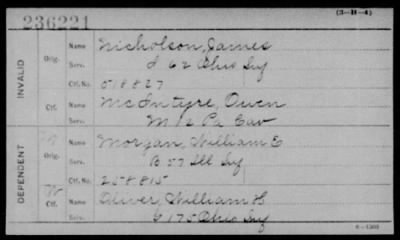 (3-B-4)
236221
INVALID
Orig. Name Nicholson, James
Serv. I 62 Ohio Inf
Ctf. No. 518827
Ctf. Name McIntyre, Owen
Serv. M 12 Pa Cav
DEPENDENT
Orig. Name Morgan, William E
Serv. B 57 Ill Inf
Ctf. No. 258815
W Ctf. Name Oliver, William H
Serv. G 175 Ohio Inf
6-1303